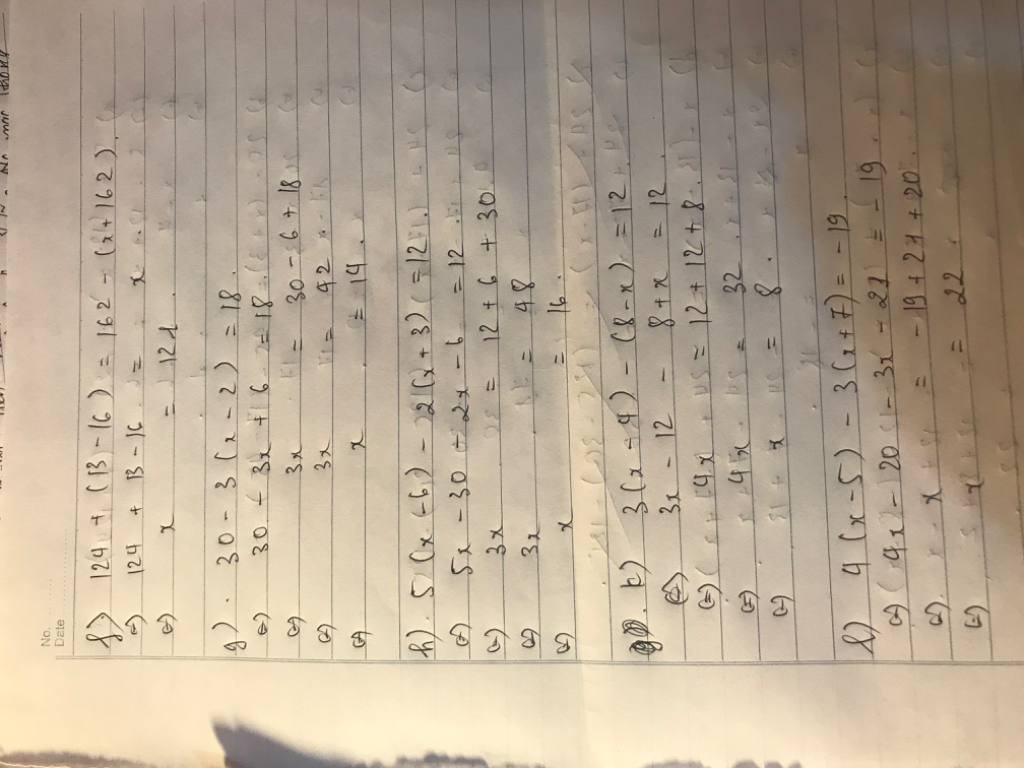 No.
Date
f) 124 + (13 - 16) = 162 - (x + 162).
⇔) 124 + 13 - 16 = x
⇔) x = 121.
g). 30 - 3 (x - 2) = 18.
⇔) 30 - 3x + 6 = 18
⇔) 3x = 30 - 6 + 18
⇔) 3x = 42
⇔) x = 14.
h). 5 (x - 6) - 2 (x + 3) = 12.
⇔) 5x - 30 - 2x - 6 = 12
⇔) 3x = 12 + 6 + 30
⇔) 3x = 48
⇔) x = 16.
k) 3 (x - 4) - (8 - x) = 12
⇔) 3x - 12 - 8 + x = 12
⇔) 4x = 12 + 12 + 8
⇔) 4x = 32
⇔) x = 8.
l) 4 (x - 5) - 3 (x + 7) = - 19.
⇔) 4x - 20 - 3x - 21 = - 19
⇔). x = - 19 + 21 + 20.
⇔) x = 22.